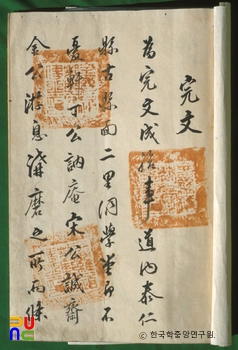 完文
為完文成給事道內泰仁
縣古縣面二里洞學堂即不
憂軒丁公訥庵宋公誠齋
金公游息講磨之所而
FUNC
© 한국학중앙연구원